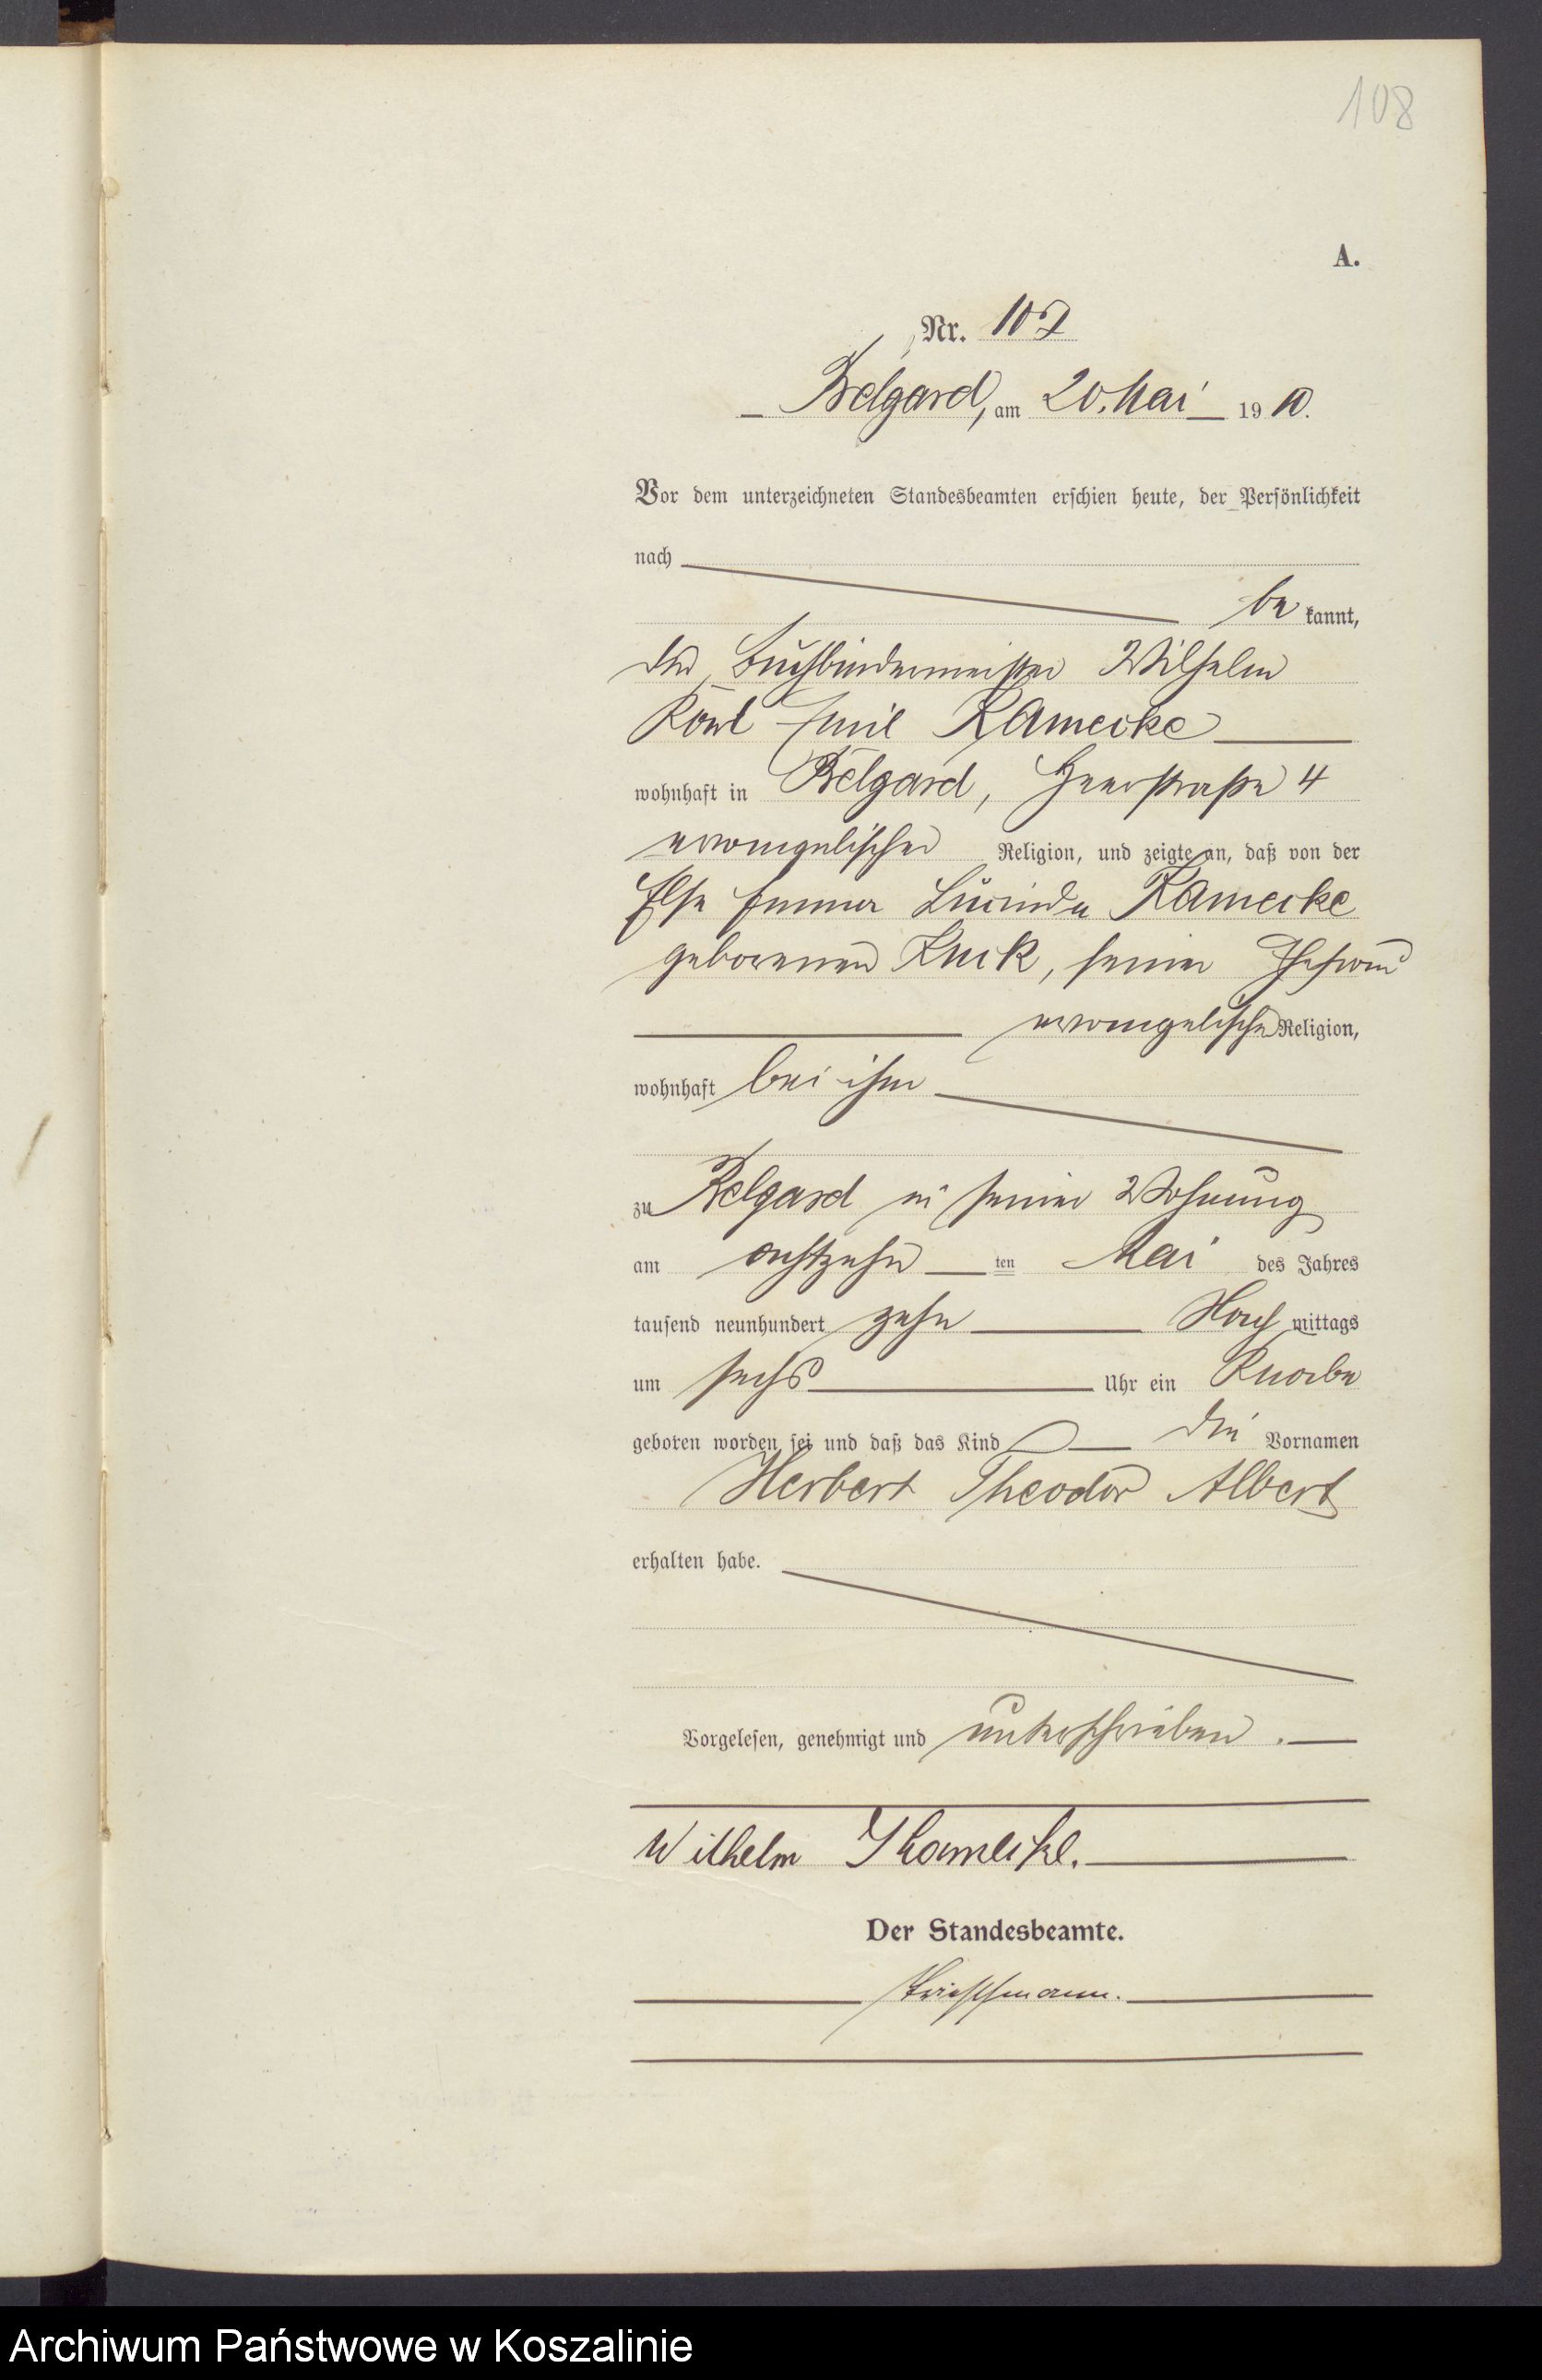 108
A.
Nr. 107
Belgard, am 20. Mai 1910.
Vor dem unterzeichneten Standesbeamten erschien heute, der Persönlichkeit
nach
be kannt,
der Buchbindermeister Wilhelm
Karl Emil Kamecke
wohnhaft in Belgard, Heerstraße 4
evangelischer Religion, und zeigte an, daß von der
Else Emma Lucinde Kamecke
geborenen Knek, seiner Ehefrau
evangelischer Religion,
wohnhaft bei ihm
zu Belgard in seiner Wohnung
am achtzehn ten Mai des Jahres
tausend neunhundert zehn Nach mittags
um sechs Uhr ein Knabe
geboren worden sei und daß das Kind die Vornamen
Herbert Theodor Albert
erhalten habe.
Vorgelesen, genehmigt und unterschrieben.
Wilhelm Kamecke.
Der Standesbeamte.
Archiwum Państwowe w Koszalinie